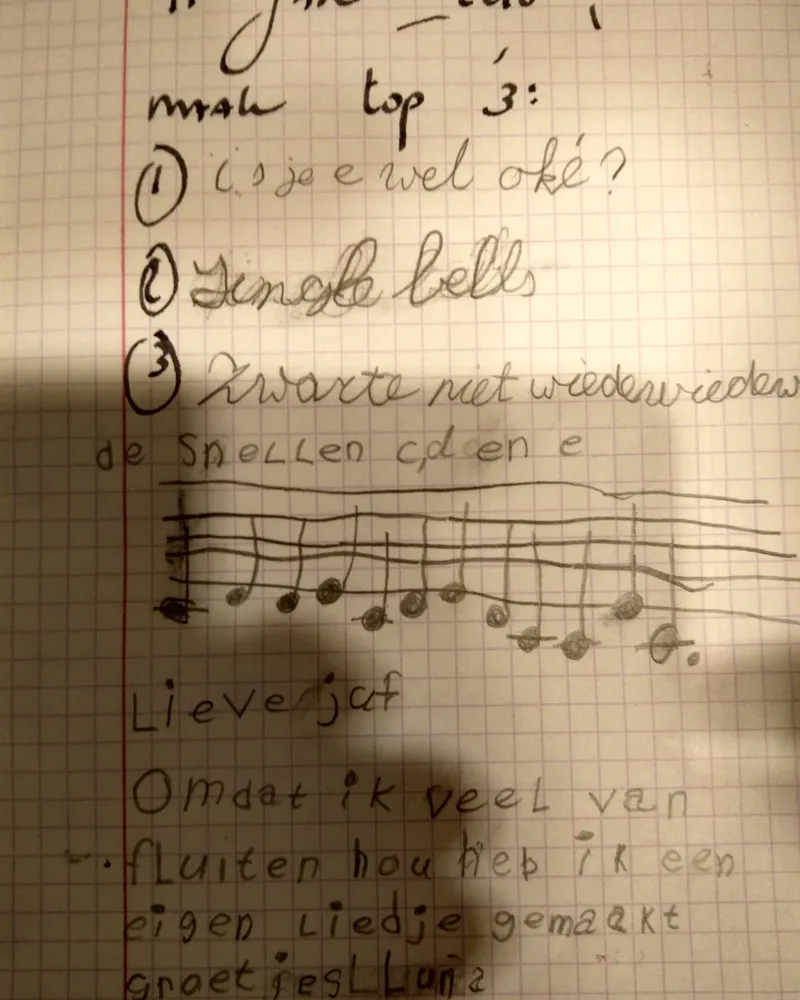 maak top 3:
① is je e wel oké?
② Jingle bells
③ Zwarte niet wiedewiedew
de SpeLLen c,d en e
Lieve juf
Omdat ik veeL van
fLuiten hou heb ik een
eigen Liedje gemaakt
groetjes